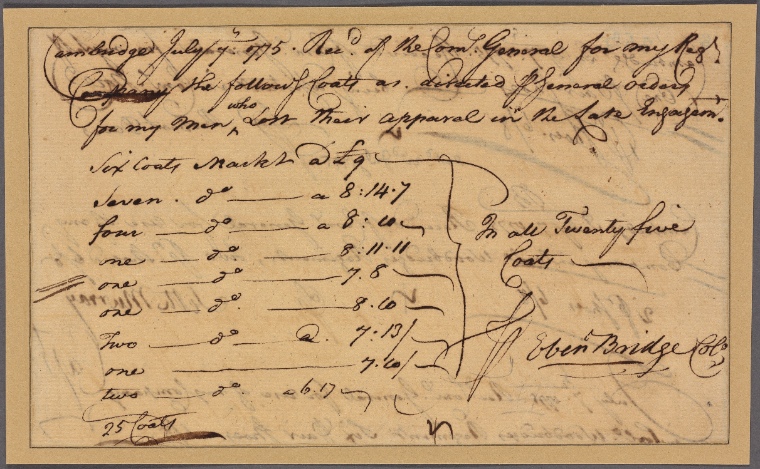 Cambridge July 7th. 1775. Recd. of the Coms. General for my Regt.
Company the followg Coats as directed pr General orders
for my men who Lost their apparal in the Late Engagemt.
Six Coats Markt @ £9
Seven. do — a 8:14.7
four — do — a 8:10
one — do — 8:11.11
one — do — 7.8
one — do. — 8.10
Two — do a. 7:13/
one — 7.10/
two — do — a 6.17
25 Coats
In all Twenty five
Coats
Ebenr Bridge Colo